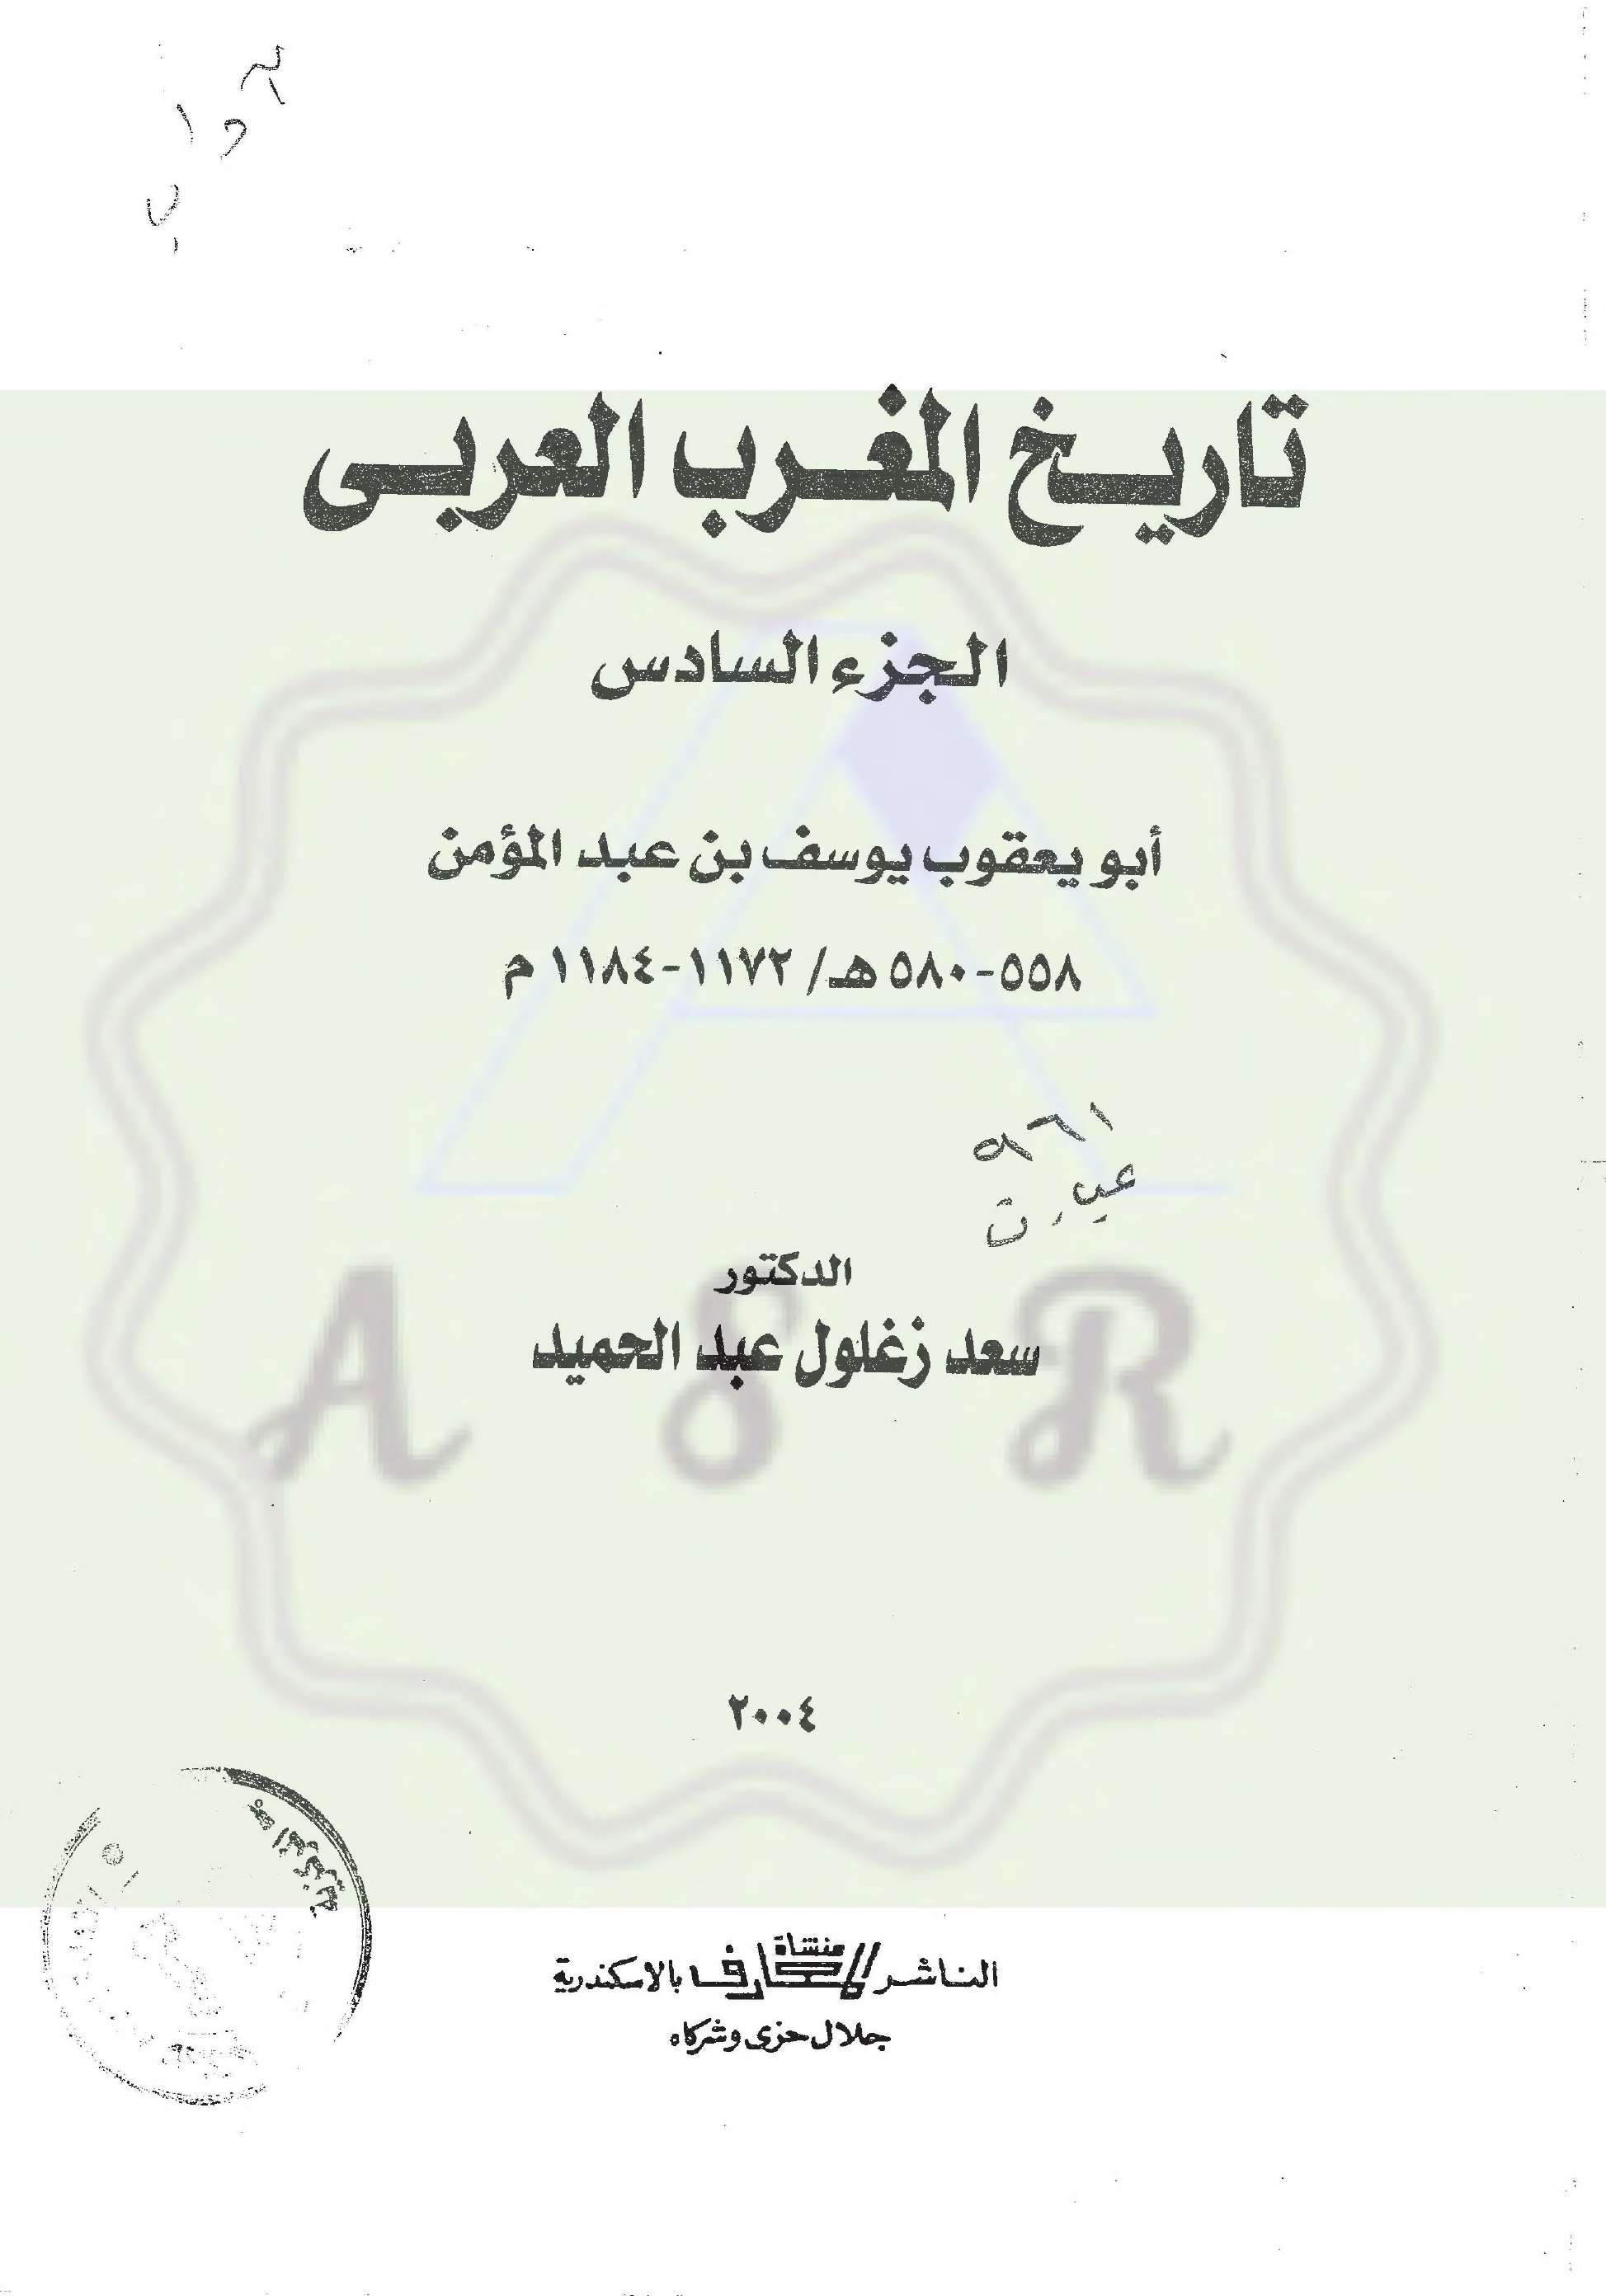 تاريخ المغرب العربى
الجزء السادس
أبو يعقوب يوسف بن عبد المؤمن
٥٥٨-٥٨٠ هـ/ ١١٧٢-١١٨٤ م
٩٦١
ع.ب. ت
الدكتور
سعد زغلول عبد الحميد
A S R
٢٠٠٤
الناشر منشاة المعارف بالاسكندرية
جلال حزى وشركاه